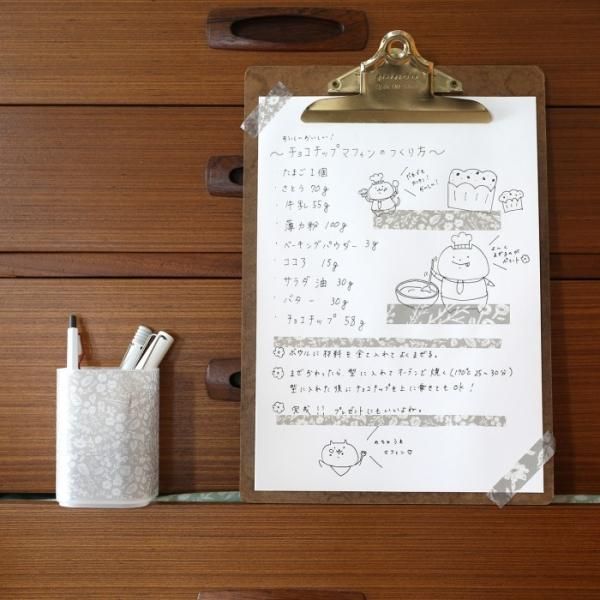 おいしーおいしー!
〜チョコチップマフィンのつくり方〜
たまご 1個
・さとう 70g
・牛乳 55g
・薄力粉 100g
・ベーキングパウダー 3g
・ココア 15g
・サラダ油 30g
・バター 30g
・チョコチップ 58g
だれでも
カンタン!
おいしー!
よーく
まぜるのが
ポイント
ボウルに材料を全て入れてよくまぜる。
まぜおわったら型に入れてオーブンで焼く(170℃ 25〜30分)
型に入れた後にチョコチップを上に乗せても OK!
完成!! プレゼントにもいいよね。
めちゃうま
マフィン